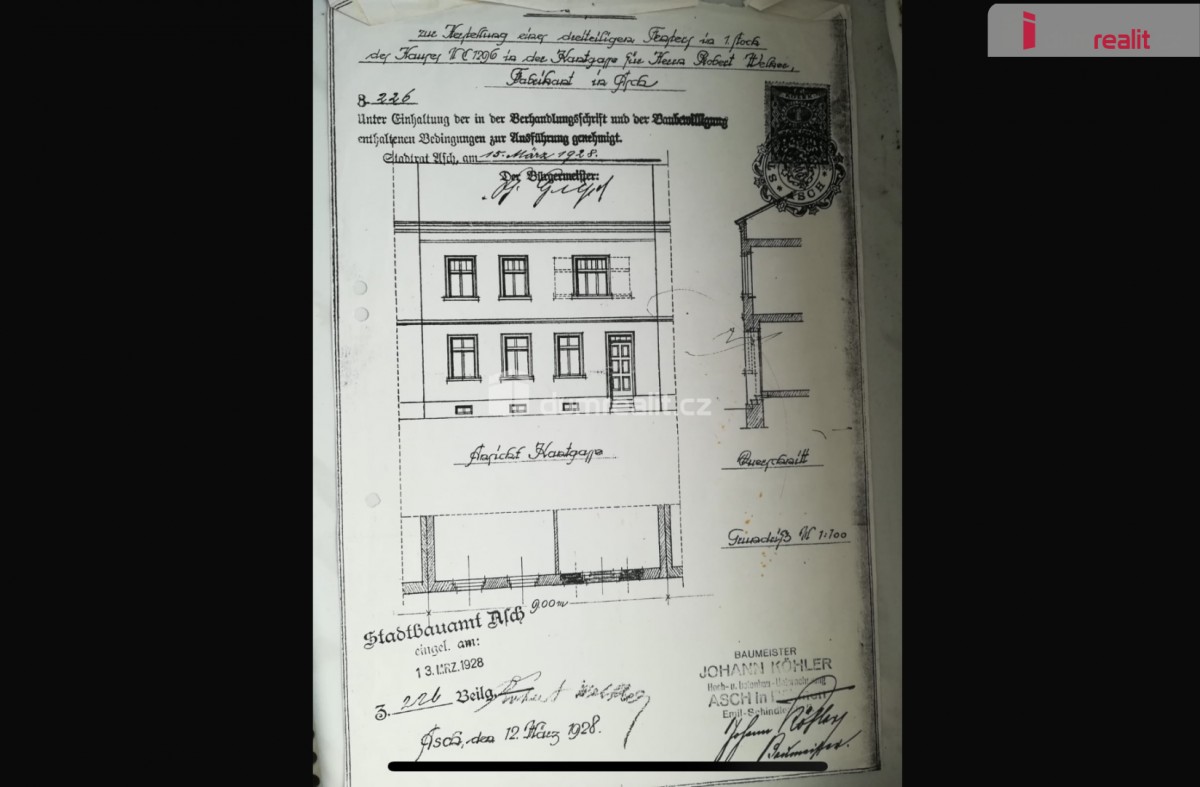 i realit
zur Herstellung eines dreiteiligen Fensters in 1. Stock
des Hauses in der Hantgasse für Herrn Robert
Fabrikant in Asch
Z. 226
Unter Einhaltung der in der Verhandlungsschrift und der Baubewilligung
enthaltenen Bedingungen zur Ausführung genehmigt.
Stadtrat Asch, am 15. März 1928.
Der Bürgermeister:
ASCH
domrealit.cz
Ansicht Hantgasse
Querschnitt
Grundriß M 1:100
9.00 m
Stadtbauamt Asch
eingel. am:
13. MRZ. 1928
Z. 226 Beilg.
Asch, den 12. März 1928.
BAUMEISTER
JOHANN KÖHLER
Hoch- u.
ASCH in
Emil-Schindler
Johann Köhler
Baumeister.